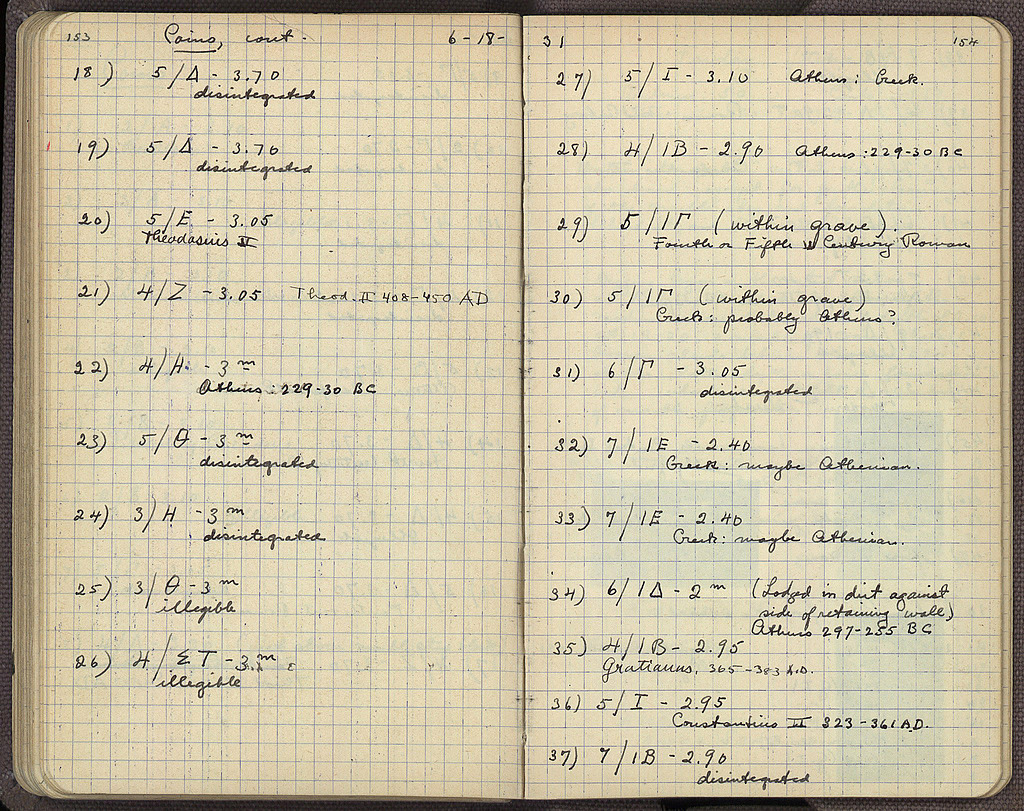 153 Coins, cont. 6-18-
18) 5/Δ - 3.70
disintegrated
19) 5/Δ - 3.70
disintegrated
20) 5/E - 3.05
Theodasius II
21) 4/Z - 3.05 Theod. II 408-450 AD
22) 4/H - 3 m
Athens: 229-30 BC
23) 5/Θ - 3 m
disintegrated
24) 3/H - 3 m
disintegrated
25) 3/Θ - 3 m
illegible
26) 4/ΣT - 3 m
illegible
31 154
27) 5/I - 3.10 Athens: Greek.
28) 4/IB - 2.90 Athens: 229-30 BC
29) 5/IΓ (within grave).
Fourth or Fifth Century Roman
30) 5/IΓ (within grave)
Greek: probably Athens?
31) 6/Γ - 3.05
disintegrated
32) 7/IE - 2.40
Greek: maybe Athenian.
33) 7/IE - 2.40
Greek: maybe Athenian.
34) 6/IΔ - 2 m (Lodged in dirt against
side of retaining wall)
Athens 297-255 BC
35) 4/IB - 2.95
Gratianus, 365-383 A.D.
36) 5/I - 2.95
Constantius II 323-361 AD.
37) 7/IB - 2.90
disintegrated